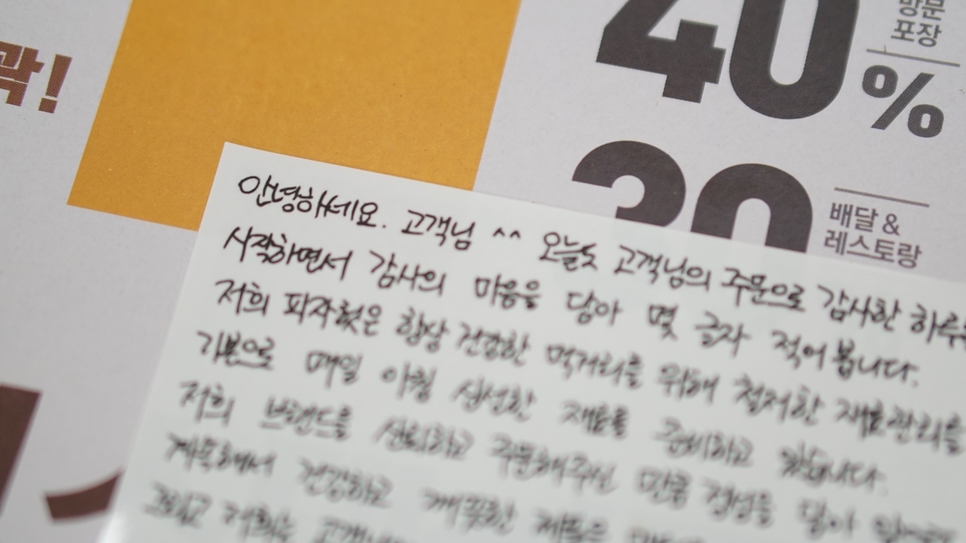 곽!
40%
방문
포장
30
배달 &
레스토랑
안녕하세요. 고객님 ^^ 오늘도 고객님의 주문으로 감사한 하루를
시작하면서 감사의 마음을 담아 몇 글자 적어봅니다.
저희 피자헛은 항상 건강한 먹거리를 위해 철저한 재료관리를
기본으로 매일 아침 신선한 재료를 준비하고 있습니다.
저희 브랜드를 신뢰하고 주문해주신 만큼 정성을 담아
계속해서 건강하고 깨끗한 제품을
그리고 저희는